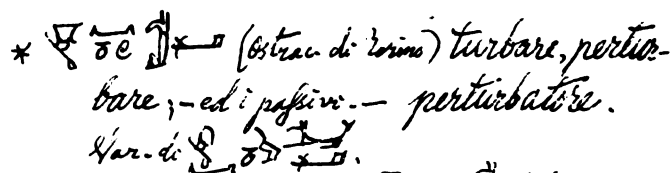 * (Ostrac. di Torino) turbare, pertur-
bare; — ed i passivi. — perturbatore.
Var. di